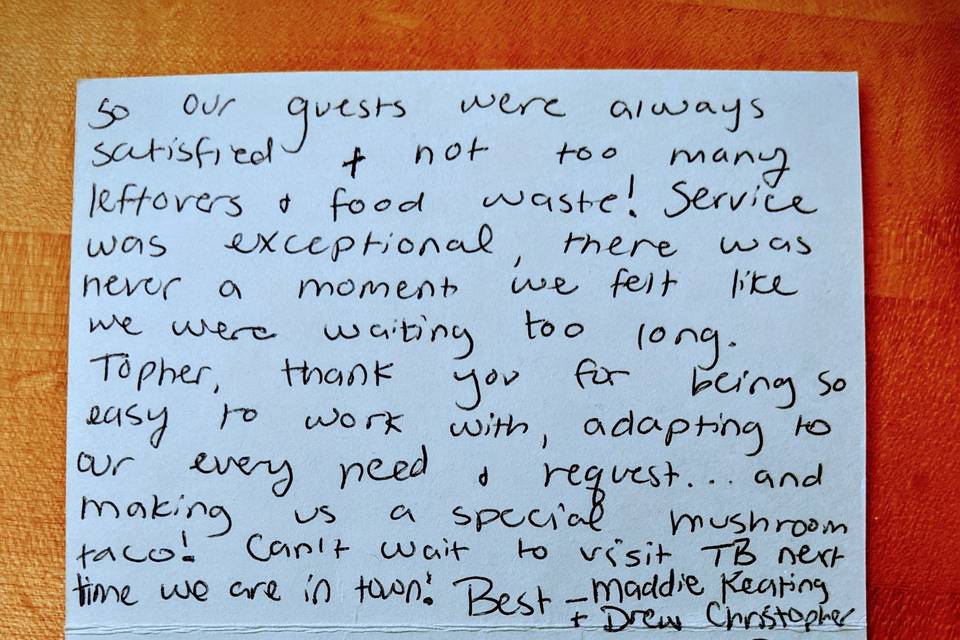 So our guests were always
satisfied + not too many
leftovers & food waste! Service
was exceptional, there was
never a moment we felt like
we were waiting too long.
Topher, thank you for being so
easy to work with, adapting to
our every need & request... and
making us a special mushroom
taco! Can't wait to visit TB next
time we are in town! Best - Maddie Keating
+ Drew Christopher